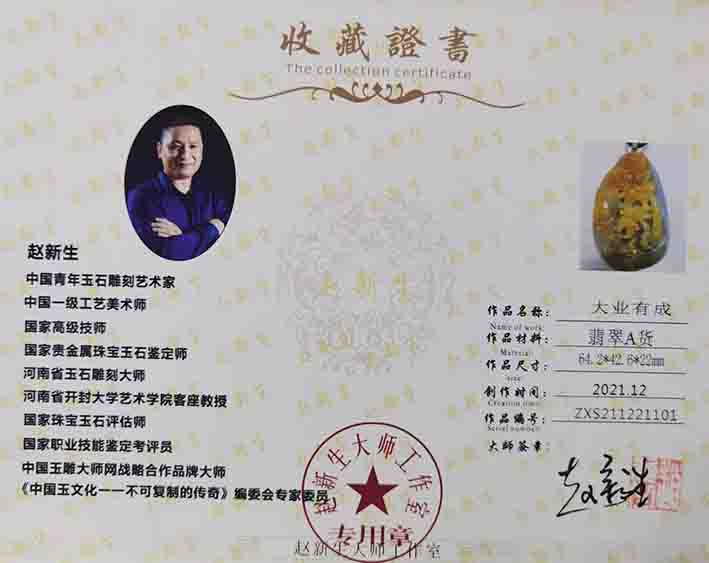 收藏證書
The collection certificate
赵新生
中国青年玉石雕刻艺术家
中国一级工艺美术师
国家高级技师
国家贵金属珠宝玉石鉴定师
河南省玉石雕刻大师
河南省开封大学艺术学院客座教授
国家珠宝玉石评估师
国家职业技能鉴定考评员
中国玉雕大师网战略合作品牌大师
《中国玉文化一一不可复制的传奇》编委会专家委员
作品名称: 大业有成
Name of work:
作品材料: 翡翠A货
Material:
作品尺寸: 64.2*42.6*22mm
size:
创作时间: 2021.12
Creation time:
作品编号: ZXS211221101
Serial number:
大师签章:
赵新生
赵新生大师工作室
专用章
赵新生大师工作室